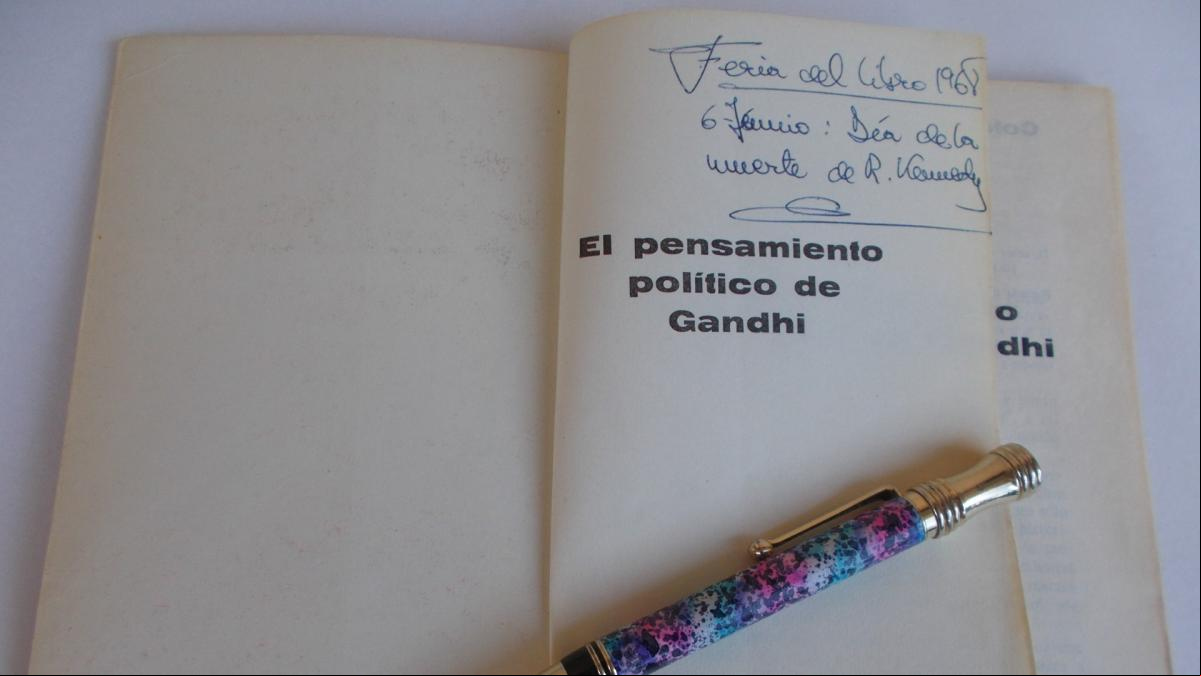 Feria del Libro 1968
6 Junio: Día de la
muerte de R. Kennedy
El pensamiento
político de
Gandhi
o
dhi